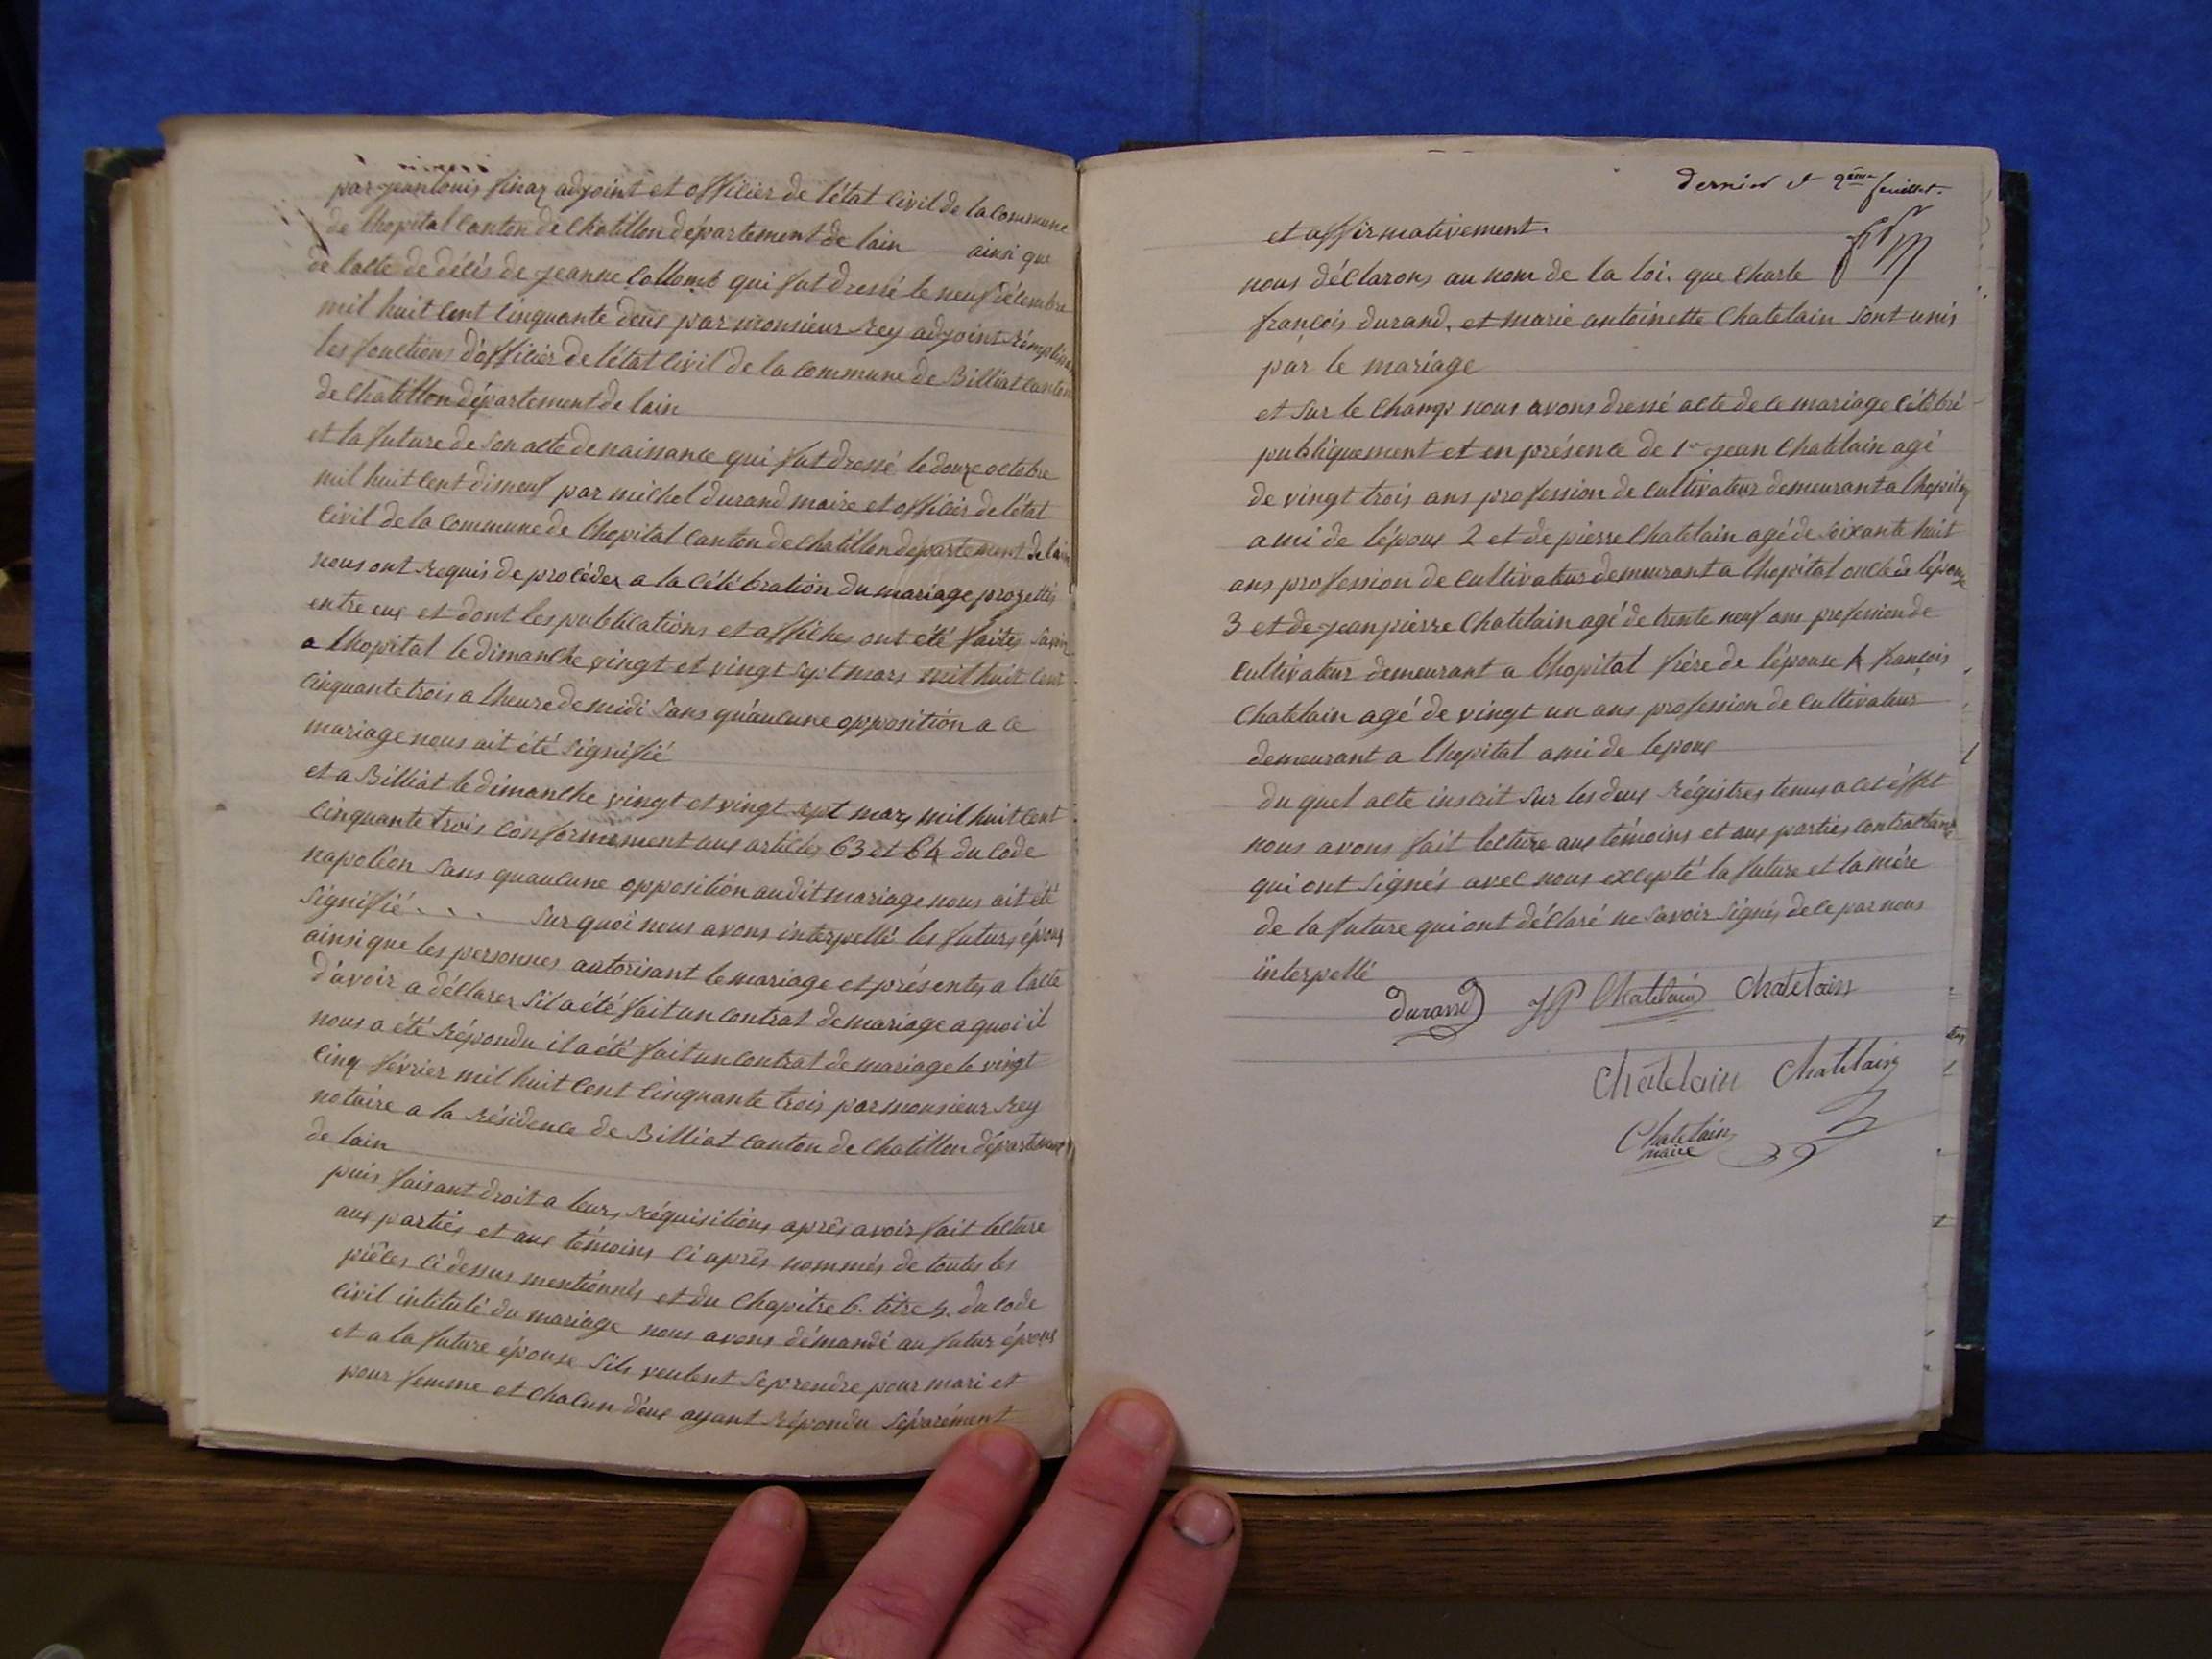 par jean louis finaz adjoint et officier de l'état civil de la commune
de lhopital canton de chatillon département de lain ainsi que
de lacte de décés de jeanne Collomb qui fut dressé le neuf décembre
mil huit cent cinquante deux par monsieur Rey adjoint
les fonctions d'officier de l'état civil de la commune de Billiat canton
de chatillon département de lain
et la future de son acte de naissance qui fut dressé le douze octobre
mil huit cent disneuf par michel durand maire et officier de l'état
civil de la commune de lhopital canton de chatillon département de lain
nous ont requis de procéder a la célébration du mariage progettés
entre eux et dont les publications et affiches ont été faites savoir
a lhopital le dimanche vingt et vingt sept mars mil huit cent
cinquante trois a lheure de midi sans qu'aucune opposition a ce
mariage nous ait été signifié
et a Billiat le dimanche vingt et vingt sept mars mil huit cent
cinquante trois conformement aux articles 63 et 64 du code
napoléon sans quaucune opposition audit mariage nous ait été
signifié . . . . sur quoi nous avons interpellé les futurs époux
ainsi que les personnes autorisant le mariage et présentes a lacte
d'avoir a déclarer sil a été fait un contrat de mariage a quoi il
nous a été répondu il a été fait un contrat de mariage le vingt
cinq février mil huit cent cinquante trois par monsieur Rey
notaire a la résidence de Billiat canton de chatillon département
de lain
puis faisant droit a leurs réquisitions aprés avoir fait lecture
aux partiés et aux témoins ci aprés nommés de toutes les
piéces ci dessus mentionnés et du chapitre 6. titre 5. du code
civil intitulé du mariage nous avons démandé au futur époux
et a la future épouse sils veulent se prendre pour mari et
pour femme et chacun d'eux ayant répondu séparément
dernier et 2ème feuillet.
et affirmativement.
nous déclarons au nom de la loi. que charle
françois durand, et marie antoinette chatelain sont unis
par le mariage
et sur le champ nous avons dressé acte de ce mariage célébré
publiquement et en présence de 1er jean chatelain agé
de vingt trois ans profession de cultivateur demeurant a lhopital
ami de lépoux 2 et de pierre chatelain agé de soixante huit
ans profession de cultivateur demeurant a lhopital oncle de lépouse
3 et de jean pierre chatelain agé de trente neuf ans profession de
cultivateur demeurant a lhopital frére de lépouse 4 françois
chatelain agé de vingt un ans profession de cultivateur
demeurant a lhopital ami de lepoux
du quel acte inscrit sur les deux régistres tenus a cet éffet
nous avons fait lecture aux témoins et aux parties contractantes
qui ont signés avec nous excepté la future et la mére
de la future qui ont déclaré ne savoir signés de ce par nous
interpellé
durand JP Chatelain chatelain
Chatelain Chatelain
Chatelain
maire